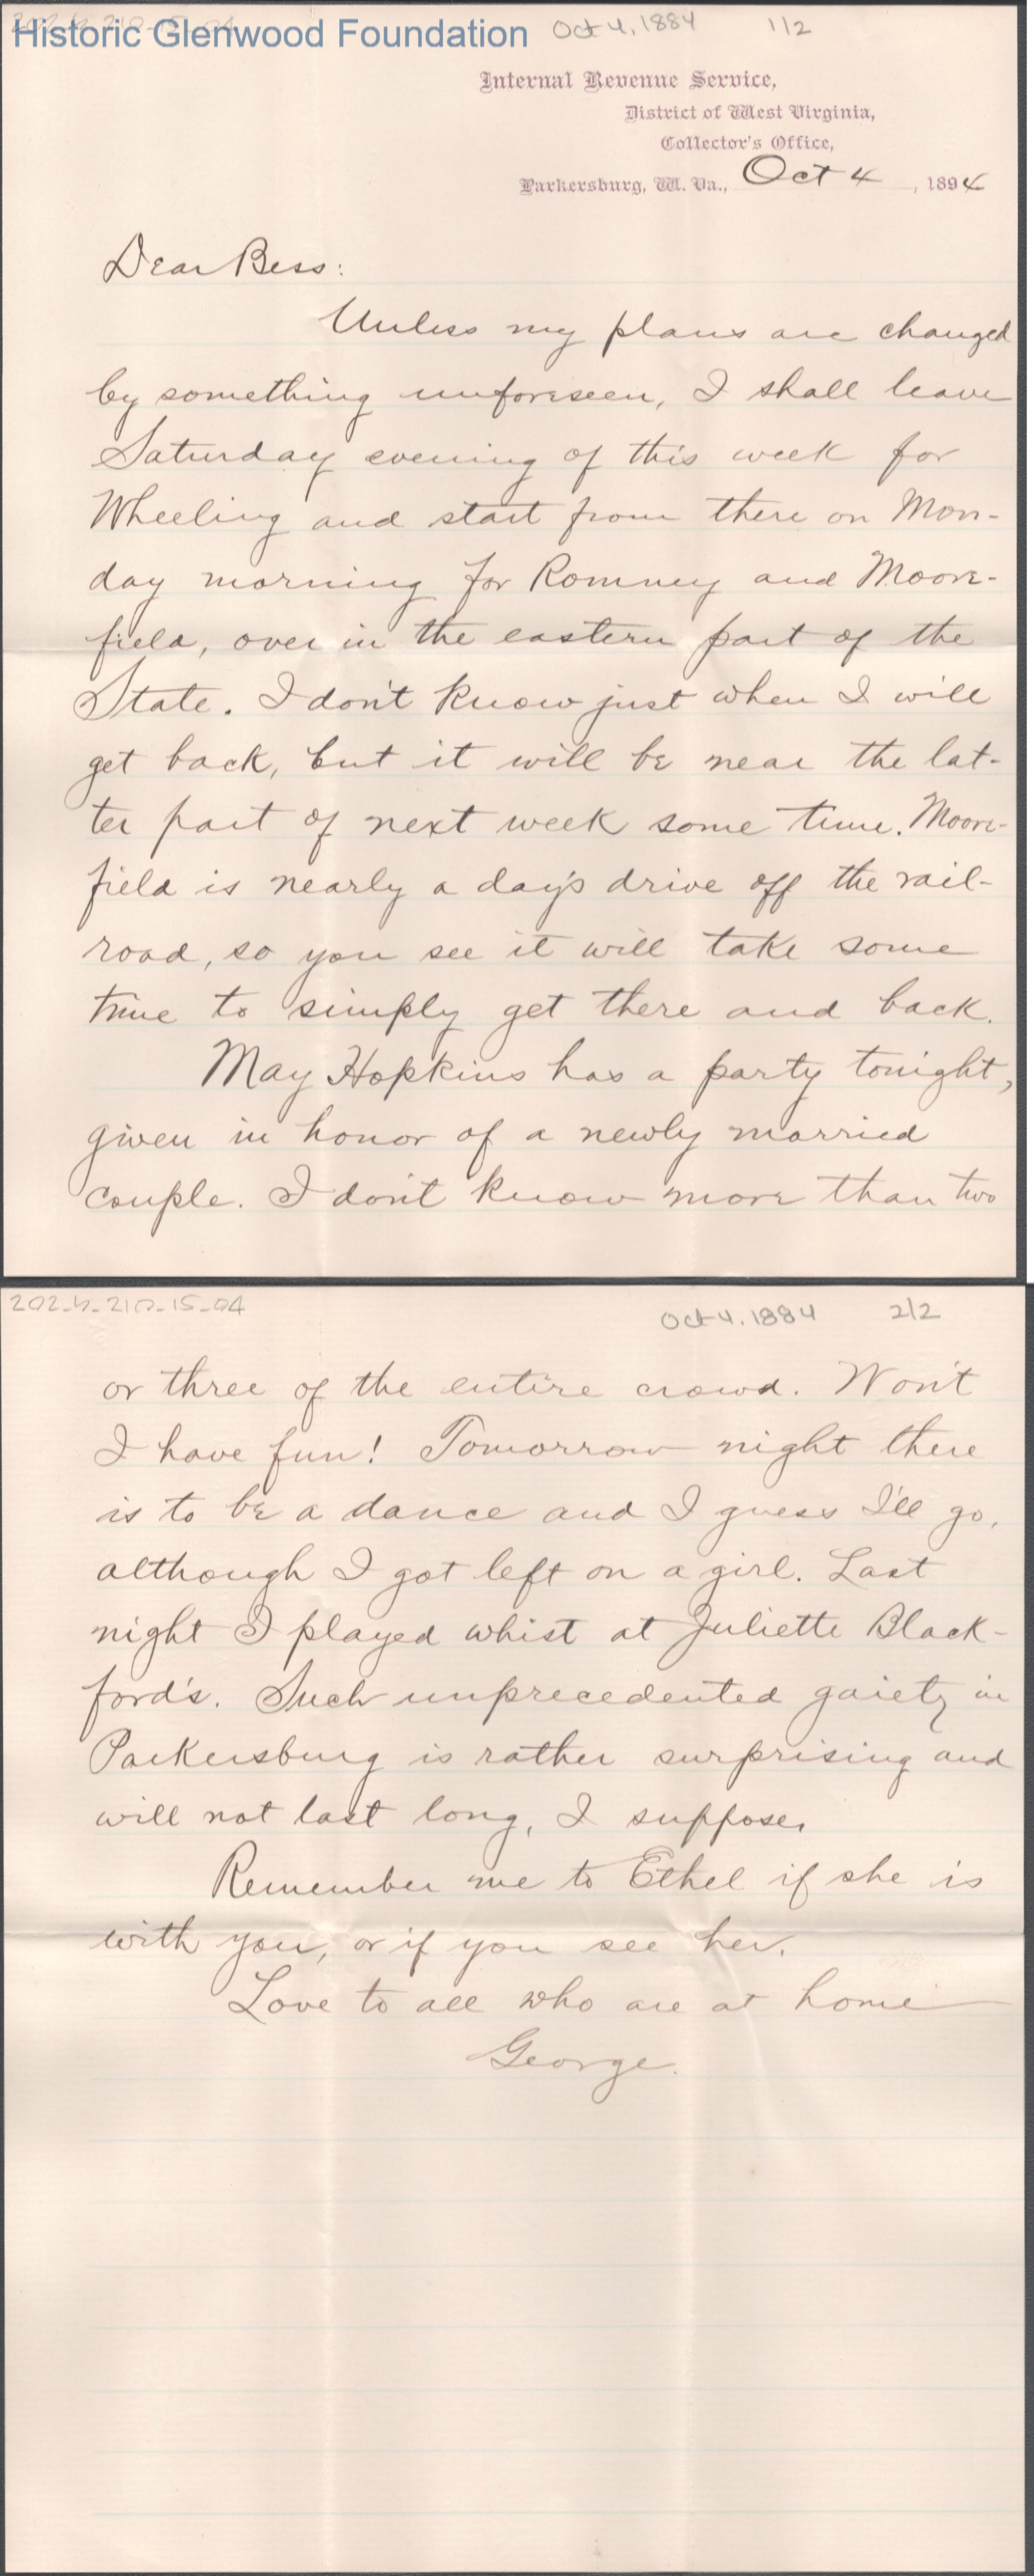 202-4-210-15-04
Historic Glenwood Foundation
Oct 4, 1884 1/2
Internal Revenue Service,
District of West Virginia,
Collector's Office,
Parkersburg, W. Va., Oct 4, 1894
Dear Bess:
Unless my plans are changed
by something unforeseen, I shall leave
Saturday evening of this week for
Wheeling and start from there on Mon-
day morning for Romney and Moore-
field, over in the eastern part of the
State. I don't know just when I will
get back, but it will be near the lat-
ter part of next week some time. Moore-
field is nearly a day's drive off the rail-
road, so you see it will take some
time to simply get there and back.
May Hopkins has a party tonight,
given in honor of a newly married
couple. I don't know more than two
202-4-210-15-04
Oct 4. 1884 2/2
or three of the entire crowd. Won't
I have fun! Tomorrow night there
is to be a dance and I guess I'll go,
although I got left on a girl. Last
night I played whist at Juliette Black-
ford's. Such unprecedented gaiety in
Parkersburg is rather surprising and
will not last long, I suppose.
Remember me to Ethel if she is
with you, or if you see her.
Love to all who are at home
George.